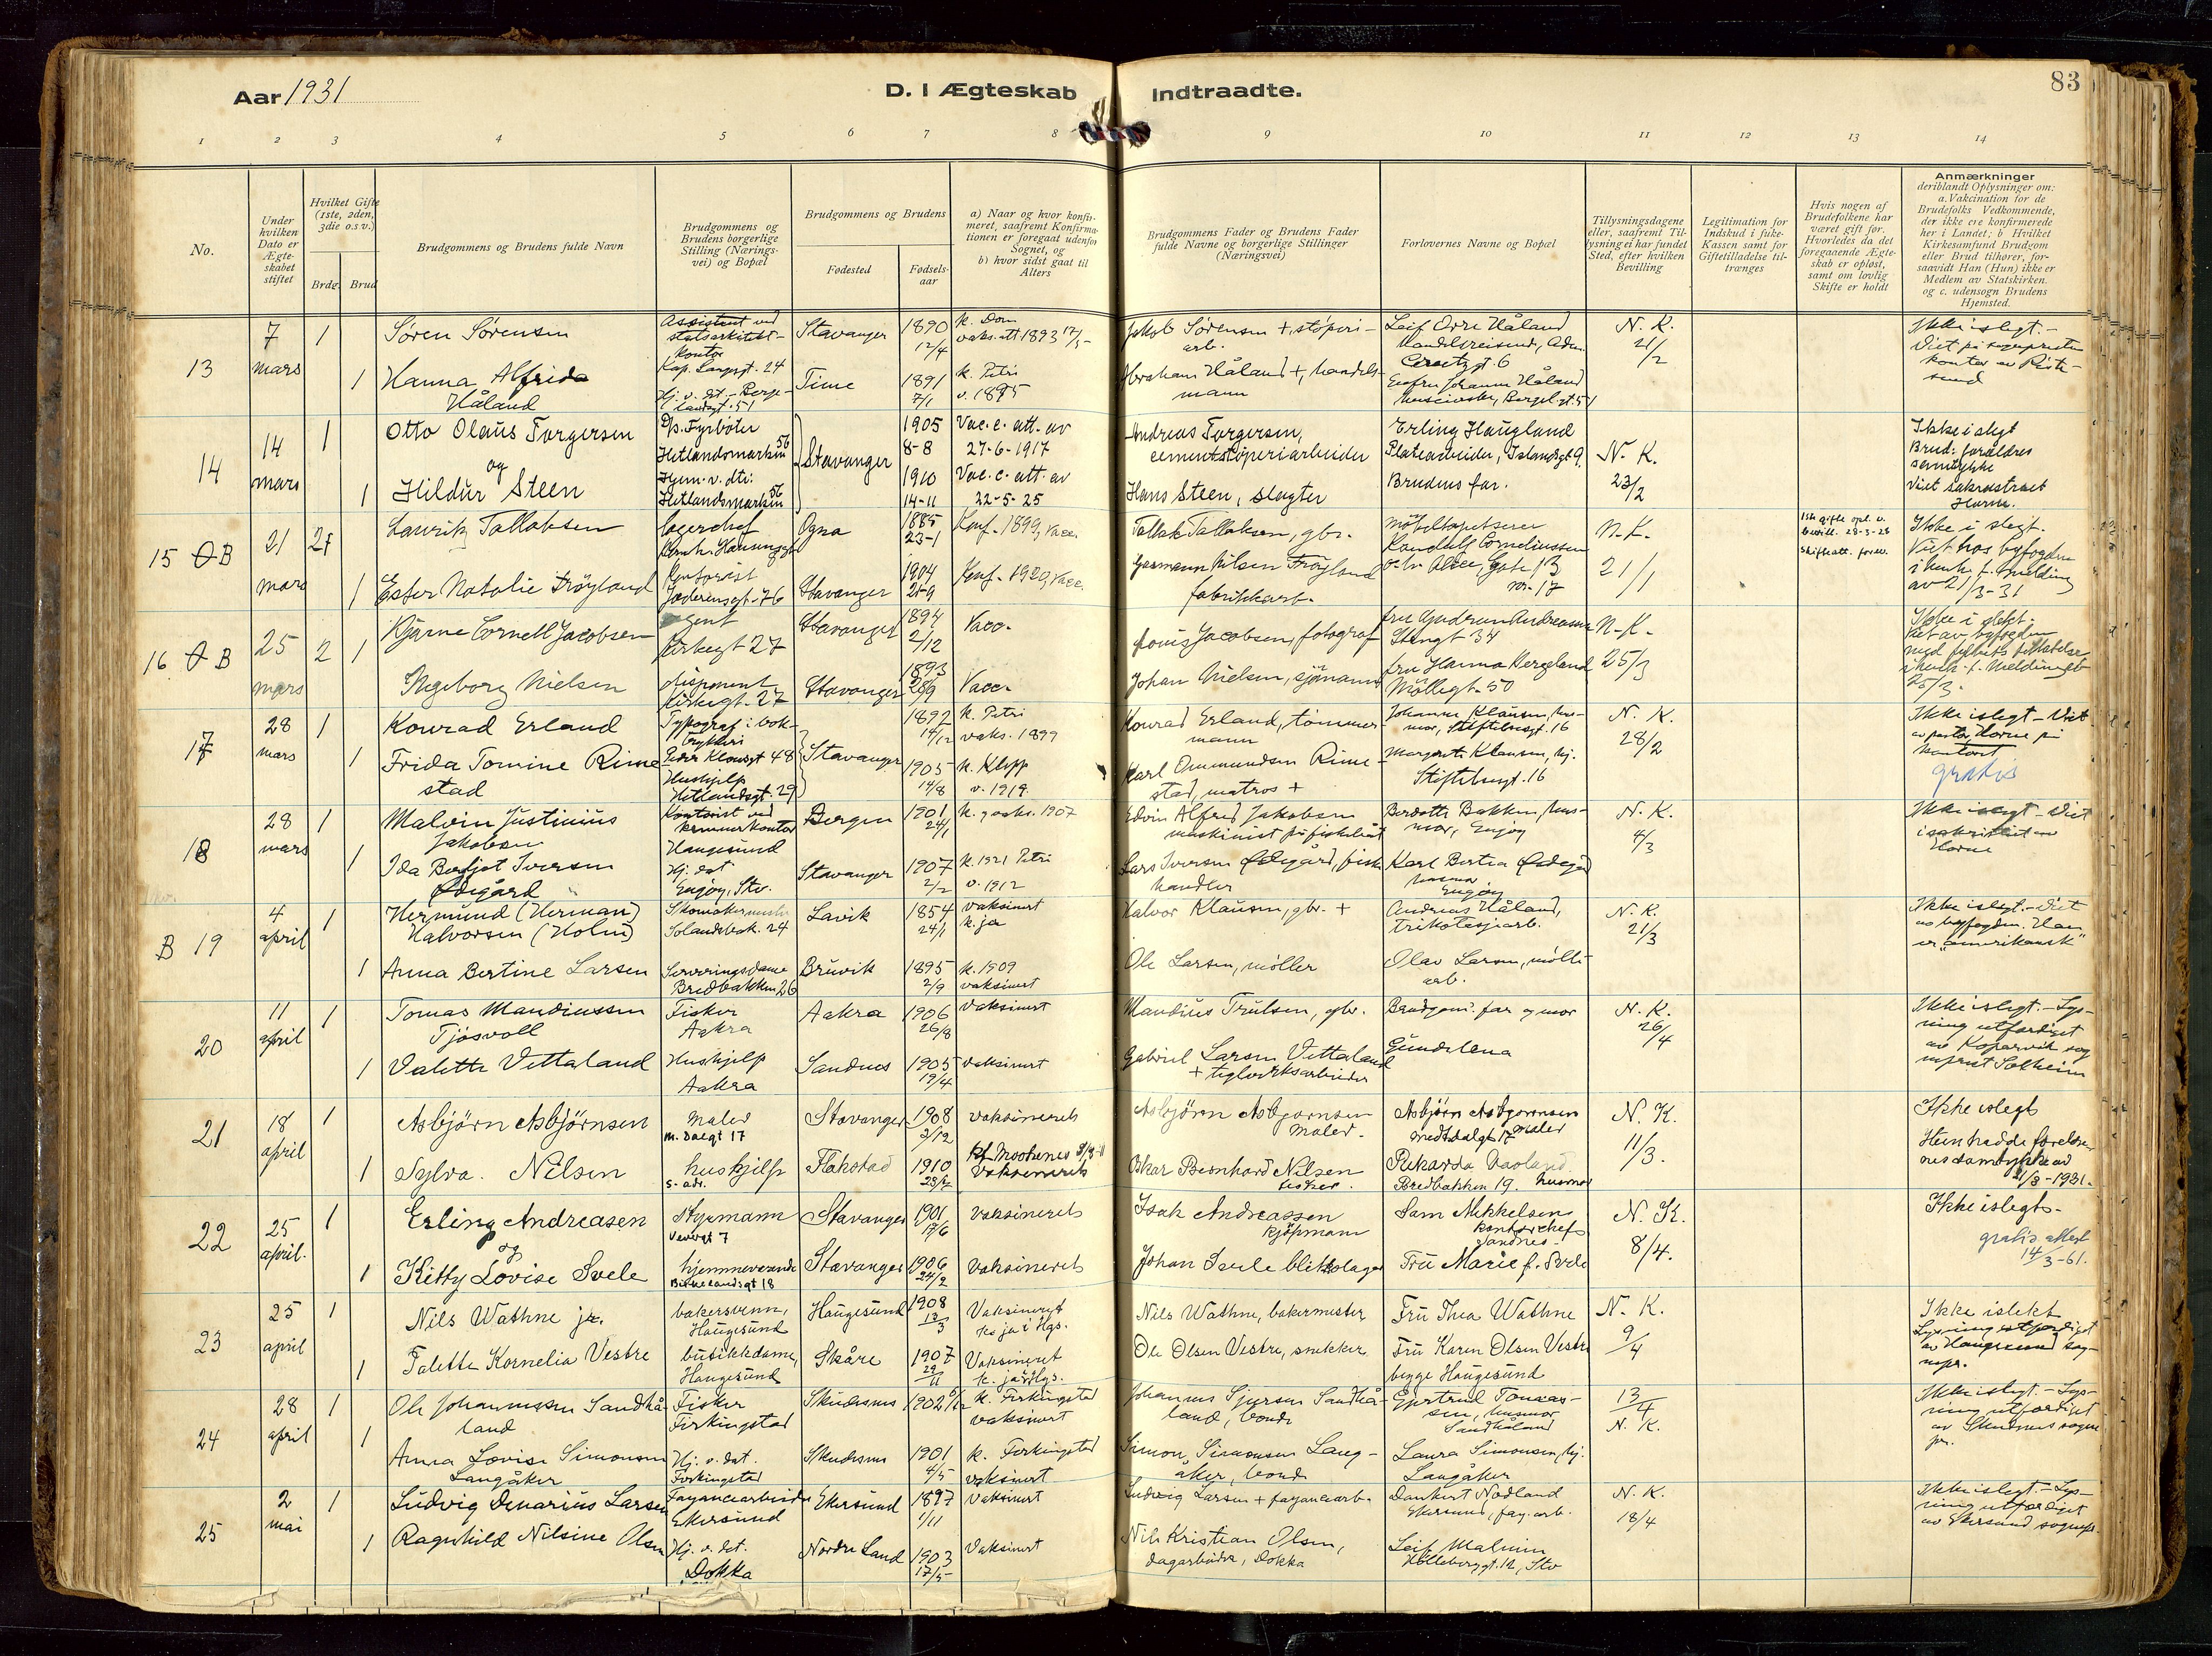 Aar 1931
D. I Ægteskab Indtraadte.
83
1 2 3 4 5 6 7 8 9 10 11 12 13 14
No.
Under hvilken Dato er Ægteskabet stiftet
Hvilket Gifte (1ste, 2den, 3die o.s.v.)
Brdg. Brud
Brudgommens og Brudens fulde Navn
Brudgommens og Brudens borgerlige Stilling (Næringsvei) og Bopæl
Brudgommens og Brudens
Fødested
Fødselsaar
a) Naar og hvor konfirmeret, saafremt Konfirmationen er foregaat udenfor Sognet, og
b) hvor sidst gaat til Alters
Brudgommens Fader og Brudens Fader fulde Navne og borgerlige Stillinger (Næringsvei)
Forlovernes Navne og Bopæl
Tillysningsdagene eller, saafremt Tillysning ei har fundet Sted, efter hvilken Bevilling
Legitimation for Indskud i Enke-Kassen samt for Giftetilladelse tiltrænges
Hvis nogen af Brudefolkene har været gift før. Hvorledes da det foregaaende Ægteskab er opløst, samt om lovlig Skifte er holdt
Anmærkninger
deriblandt Oplysninger om: a. Vakcination for de Brudefolks Vedkommende, der ikke ere konfirmerede her i Landet; b Hvilket Kirkesamfund Brudgom eller Brud tilhører, forsaavidt Han (Hun) ikke er Medlem av Statskirken. og c. udensogn Brudens Hjemsted.
13
7 mars
1 Søren Sørensen
Assistent ved
kontor
Kap. Langgt. 24
Stavanger 1890 12/4
k. Dom
vaks. att 1893 17/5
Jakob Sørensen +, støperi-
arb.
Leif Orre Håland
Handelsreisende,
N. K.
21/2
Ikke i slegt.-
Viet på sogneprestens
kontor av
1 Hanna Alfrida
Håland
Hj. v. det - Berge-
landsgt. 51
Time 1891 7/1
k. Petri
v. 1895
Abraham Håland +, handels-
mann
Johanna Håland
Bergel.gt. 51
14
14 mars
1 Otto Olaus Torgersen
og
1 Hildur Steen
D/s. Fyrbøter
Hetlandsmarken 56
Hjem. v. dto:
Hetlandsmarken 56
Stavanger
1905 8-8
1910 14-11
Vac. c. att. av
27-6-1917
Vac. c. att. av
22-5-25
Andreas Torgersen,
cementstøperiarbeider
Hans Steen, slagter
Erling Haugland
Platearbeider, Islandsgt 9.
Brudens far.
N. K.
23/2
Ikke i slegt
Brud: foreldres
samtykke
Viet sakrastiet
Horne.
15 B
21 mars
2
Lauritz Tallaksen
Lagerchef
Ogna 1885 23-1
Konf. 1899, vacc.
Tallak Tallaksen, gbr.
Møbeltapetserer
Randulf Corneliussen
N. K.
21/1
1ste gifte opl. v.
bevill. 28-3-28
Skifteatt. forev.
Ikke i slegt.
Viet hos byfogden
i henh. t. melding
av 21/3-31
1 Ester Natalie Frøyland
Kontorist
Jæderensgt. 76
Stavanger 1904 21-9
Konf. 1920, vacc.
Gasmann Nilsen Frøyland
fabrikkarb.
nr. 17
16 B
25 mars
2 1
Bjarne Cornell Jacobsen
Agent
Kirkegt 27
Stavanger 1894 2/12
Vacc.
Louis Jacobsen, fotograf
fru Gudrun Andreassen
Stengt 34
N. K.
25/3
Ikke i slekt.
Viet av byfogden
25/3.
Ingeborg Nielsen
disponent
Kirkegt. 27
Stavanger 1893 28/9
Vacc.
Johan Nielsen, sjømann
fru Hanna Bergeland
Møllegt. 50
17
28 mars
1 Konrad Erland
Typograf i bok-
trykkeri
Peder Klowsgt 48
Stavanger
1892 14/12
k. Petri
vaks. 1899
Konrad Erland, tømmer-
mann
Johanne Klausen, hus-
mor, Stiftelsesgt. 16
N. K.
28/2
Ikke i slegt - Viet
av pastor Horne på
kontoret
gratis
1 Frida Tomine Rime-
stad
Hushjelp
Hetlandsgt. 29
1905 14/8
k. Klepp
v. 1919
Karl Ommundsen Rime-
stad, matros +
Margrete Klausen, hj.
Stiftelsesgt. 16
18
28 mars
1 Malvin Justinius
Jakobsen
Kontorist ved
kemnerkontor
Haugesund
Bergen 1901 24/1
k. g vaks. 1907
Edvin Alfred Jakobsen
maskinist på fiskebåt
Berdotte Bakken, hus-
mor, Engøy
N. K.
4/3
Ikke i slegt - Viet
i sakristiet av
Horne
1 Ida Bergljot Iversen
Ødegård
Hj. dat
Engøy, Stv.
Stavanger 1907 2/2
k. 1921 Petri
v. 1912
Lars Iversen Ødegård, fiske-
handler
Karl Bertea Ødegård
husmor
Engøy
B 19
4 april
1 Hermund (Herman)
Halvorsen (Holm)
Skomakermester
Solandsbak. 24
Lavik 1854 24/1
vaksinert
k. ja
Halvor Klausen, gbr. +
Andreas Håland,
trikotasjearb.
N. K.
21/3
Ikke i slegt.- Viet
av byfogden. Han
er "amerikansk"
1 Anna Bertine Larsen
Serveringsdame
Bredbakken 26
Bruvik 1895 2/9
k. 1909
vaksinert
Ole Larsen, møller
Olav Larsen, mølle-
arb.
20
11 april
1 Tomas Mandiussen
Tjøsvoll
Fisker
Aakra
Aakra 1906 26/8
vaksinert
Mandius Trulsen, gbr.
Brudgoms far og mor
N. K.
26/4
Ikke i slegt.- Lys-
ning utferdiget
av Kopervik sog
neprest Solheim
1 Valette Vettaland
Hushjelp
Aakra
Sandnes 1905 19/4
vaksinert
Gabriel Larsen Vettaland
+ teglverksarbeider
Gundelena
21
18 april
1 Asbjørn Asbjørnsen
Maler
m. Dalgt 17
Stavanger 1908 2/12
vaksinerets
Asbjørn Asbjørnsen
Maler.
Asbjørn Asbjørnsen
Maler
Meddalgt 17
N. K.
11/3.
Ikke islegt
Hun hadde foreldre-
nes samtykke av
11/3-1931.
1 Sylva. Nilsen
huskjelp
s. adr.
Flakstad 1910 28/12
vaksinerets
Oskar Bernhard Nilsen
fisker.
Rikarda Vaoland
Bredbakken 19. husmor
22
25 april.
1 Erling Andreasen
og
1 Kitty Lovise Svele
Styrmann
Vevergt 7
hjemmeverende
Birkelandsgt 18
Stavanger 1901 17/6
Stavanger 1906 24/2
vaksinerets
vaksinerets
Isak Andreassen
kjøpmann
Johan Svele blikkslager
Sam Mikkelsen
kontorchef
Sandnes-
Fru Marie f. Svele
N. K.
8/4.
Ikke islegts-
gratis attest
14/3-61.
23
25 april
1 Nils Wathne jr.
bakersvenn,
Haugesund
Haugesund 1908 13/3
Vaksineret
k. ja i Hgs.
Nils Wathne, bakermester
Fru Thea Wathne
N. K.
9/4
Ikke islekt
Lysning utferdiget
av Haugesund sog-
nepr.
1 Talette Kornelia Vestre
butikkdame,
Haugesund
Skåre 1907 29/11
Vaksineret
k. ja i Hgs.
Ole Olsen Vestre, snekker
Fru Karen Olsen Vestre
begge Haugesund
24
28 april
1 Ole Johannessen Sandhå-
land
Fisker
Ferkingstad
Skudesnes 1902
k. Ferkingstad
vaksinert
Johannes Sjursen Sandhå-
land, bonde
Gjertrud Tomas-
sen, husmor
Sandhåland
13/4
N. K.
Ikke i slegt.- Lys-
ning utferdiget
av Skudenes sogne-
pr.
1 Anna Lovise Simonsen
Langåker
Hj. v. dat.
Ferkingstad
Skudesnes 1901 4/5
k. Ferkingstad
vaksinert
Simon Simonsen Lang-
åker, bonde
Laura Simonsen, hj.
Langåker
25
2 mai
1 Ludvig Denarius Larsen
Fayancearbeider
Ekersund
Ekersund 1897 1/11
vaksinert
Ludvig Larsen + fayancearb.
Dankert Nodland
Ekersund, fay. arb.
N. K.
18/4
Ikke i slegt.- Lys-
ning utferdiget
av Ekersund sognepr.
1 Ragnhild Nilsine Olsen
Hj. v. dat.
Dokka
Nordre Land 1903 17/5
Vaksinert
Nils Kristian Olsen,
dagarbeider, Dokka
Leif Malmin
Hollebergt. 12, Stv